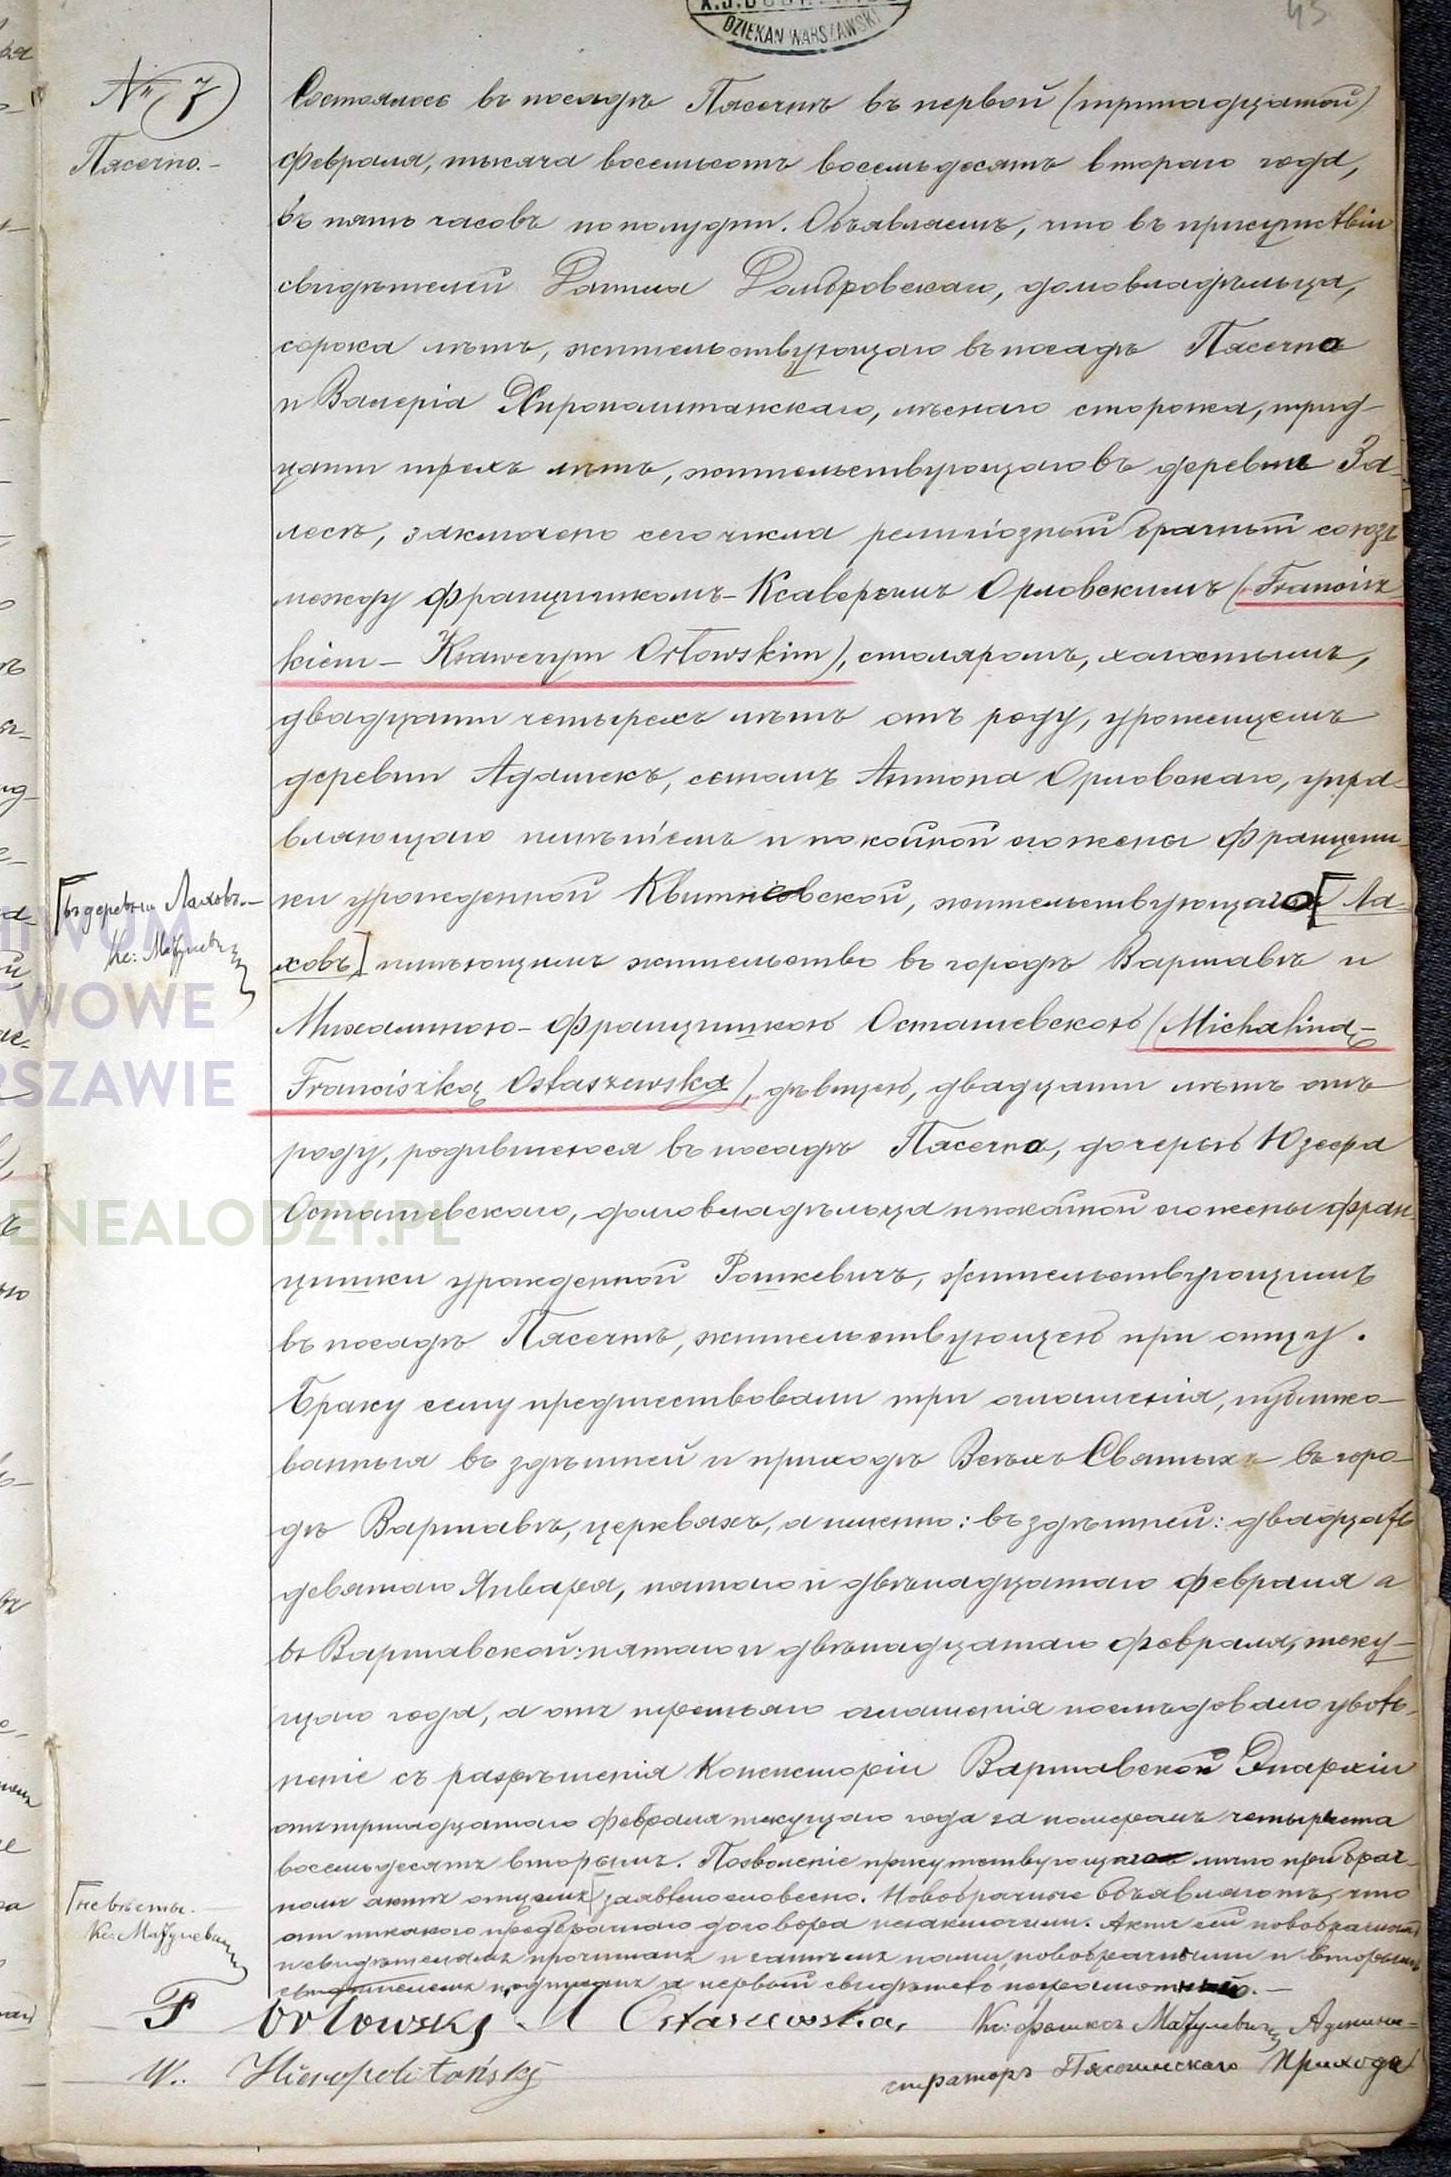 DZIEKAN WARSZAWSKI
45
№ 7
Пясечно.-
Состоялось въ посадѣ Пясечнѣ въ первой (тринадцатой)
февраля, тысяча восемьсотъ восемьдесятъ втораго года,
въ пять часовъ пополудни. Объявляемъ, что въ присутствіи
свидѣтелей Домбровскаго, домовладѣльца,
сорока лѣтъ, жительствующаго въ посадѣ Пясечно
и Валерія Хирополитанскаго, лѣснаго сторожа, трид-
цати трехъ лѣтъ, жительствующаго въ деревнѣ За-
лесѣ, заключено сего числа религіозный брачный союзъ
между Францишкомъ-Ксаверымъ Орловскимъ (Francisz
kiem - Ksawerym Orłowskim), столяромъ, холостымъ,
двадцати четырехъ лѣтъ отъ роду, уроженцемъ
деревни Адамекъ, сыномъ Антона Орловскаго, упра-
вляющаго имѣніемъ и покойной его жены Францищ-
ки урожденной Квитковской, жительствующаго [Ла-
ховъ] имѣющимъ жительство въ городѣ Варшавѣ и
[въ деревни Ляховъ.-
Кс: Мацулевичъ
Михалиною-Францишкою Осташевскою (Michaliną-
Franciszką Ostaszewską), дѣвицею, двадцати лѣтъ отъ
роду, родившеюся въ посадѣ Пясечно, дочерью Юзефа
Осташевскаго, домовладѣльца и покойной его жены Фран-
цишки урожденной Рошкевичъ, жительствующимъ
въ посадѣ Пясечнѣ, жительствующею при отцу.
Браку сему предшествовали три оглашенія, публико-
ванныя въ здѣшней и приходѣ Всѣхъ Святыхъ въ горо-
дѣ Варшавѣ, церквахъ, а именно: въ здѣшней: двадцать
девятаго Января, пятаго и двѣнадцатаго февраля а
въ Варшавской: пятаго и двѣнадцатаго февраля, теку-
щаго года, а отъ третьяго оглашенія послѣдовало уволь-
неніе съ разрѣшенія Консисторіи Варшавской Эпархіи
отъ тринадцатаго февраля текущаго года за номеромъ четыреста
восемьдесятъ вторымъ. Позволеніе присутствующаго лично при брач-
номъ актѣ отцемъ [заявлено словесно. Новобрачные объявляютъ, что
[невѣсты.-
Кс: Мацулевичъ
они никакого предбрачнаго договора незаключили. Актъ сей новобрачнымъ
и свидѣтелямъ прочитанъ и затѣмъ нами, новобрачными и вторымъ
свидѣтелемъ подписанъ а первый свидѣтель неграмотный.-
F Orłowski M Ostaszewska, Кс: Мацулевичъ Админи-
W. Hieropolitański страторъ Пясечинскаго Прихода